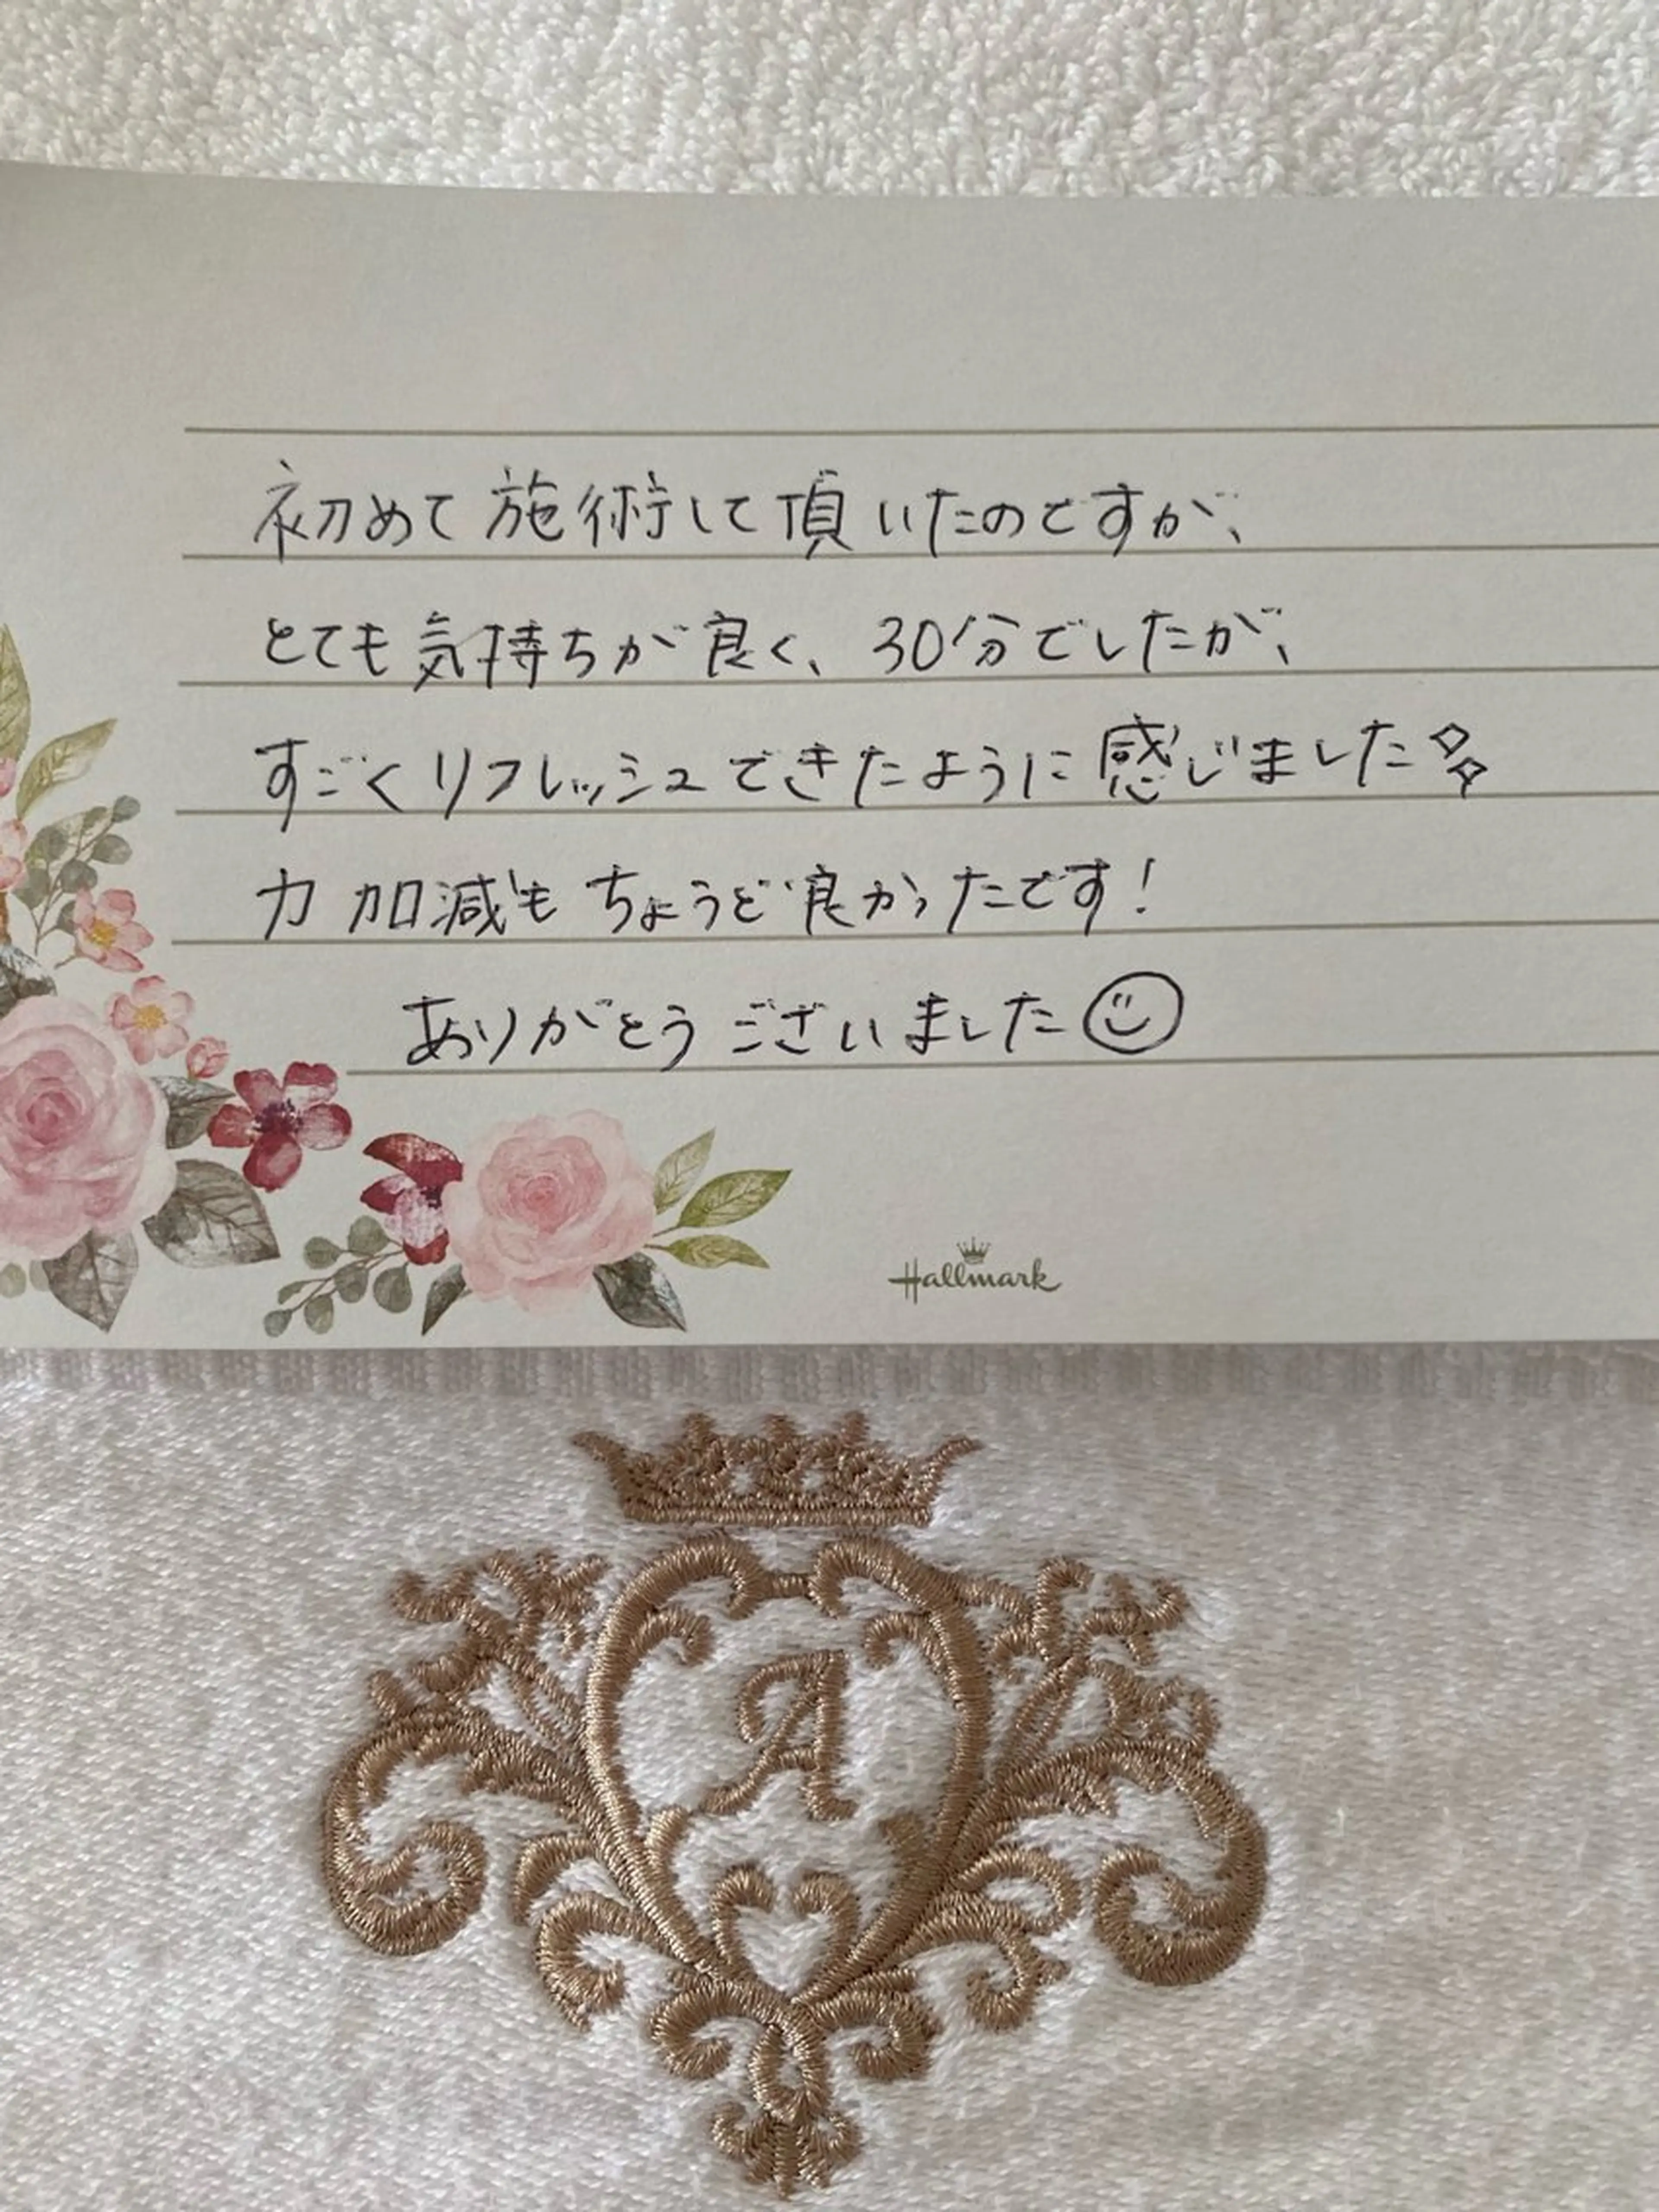 初めて施術して頂いたのですが、
とても気持ちが良く、30分でしたが、
すごくリフレッシュできたように感じました
力加減もちょうど良かったです!
ありがとうございました
Hallmark
A